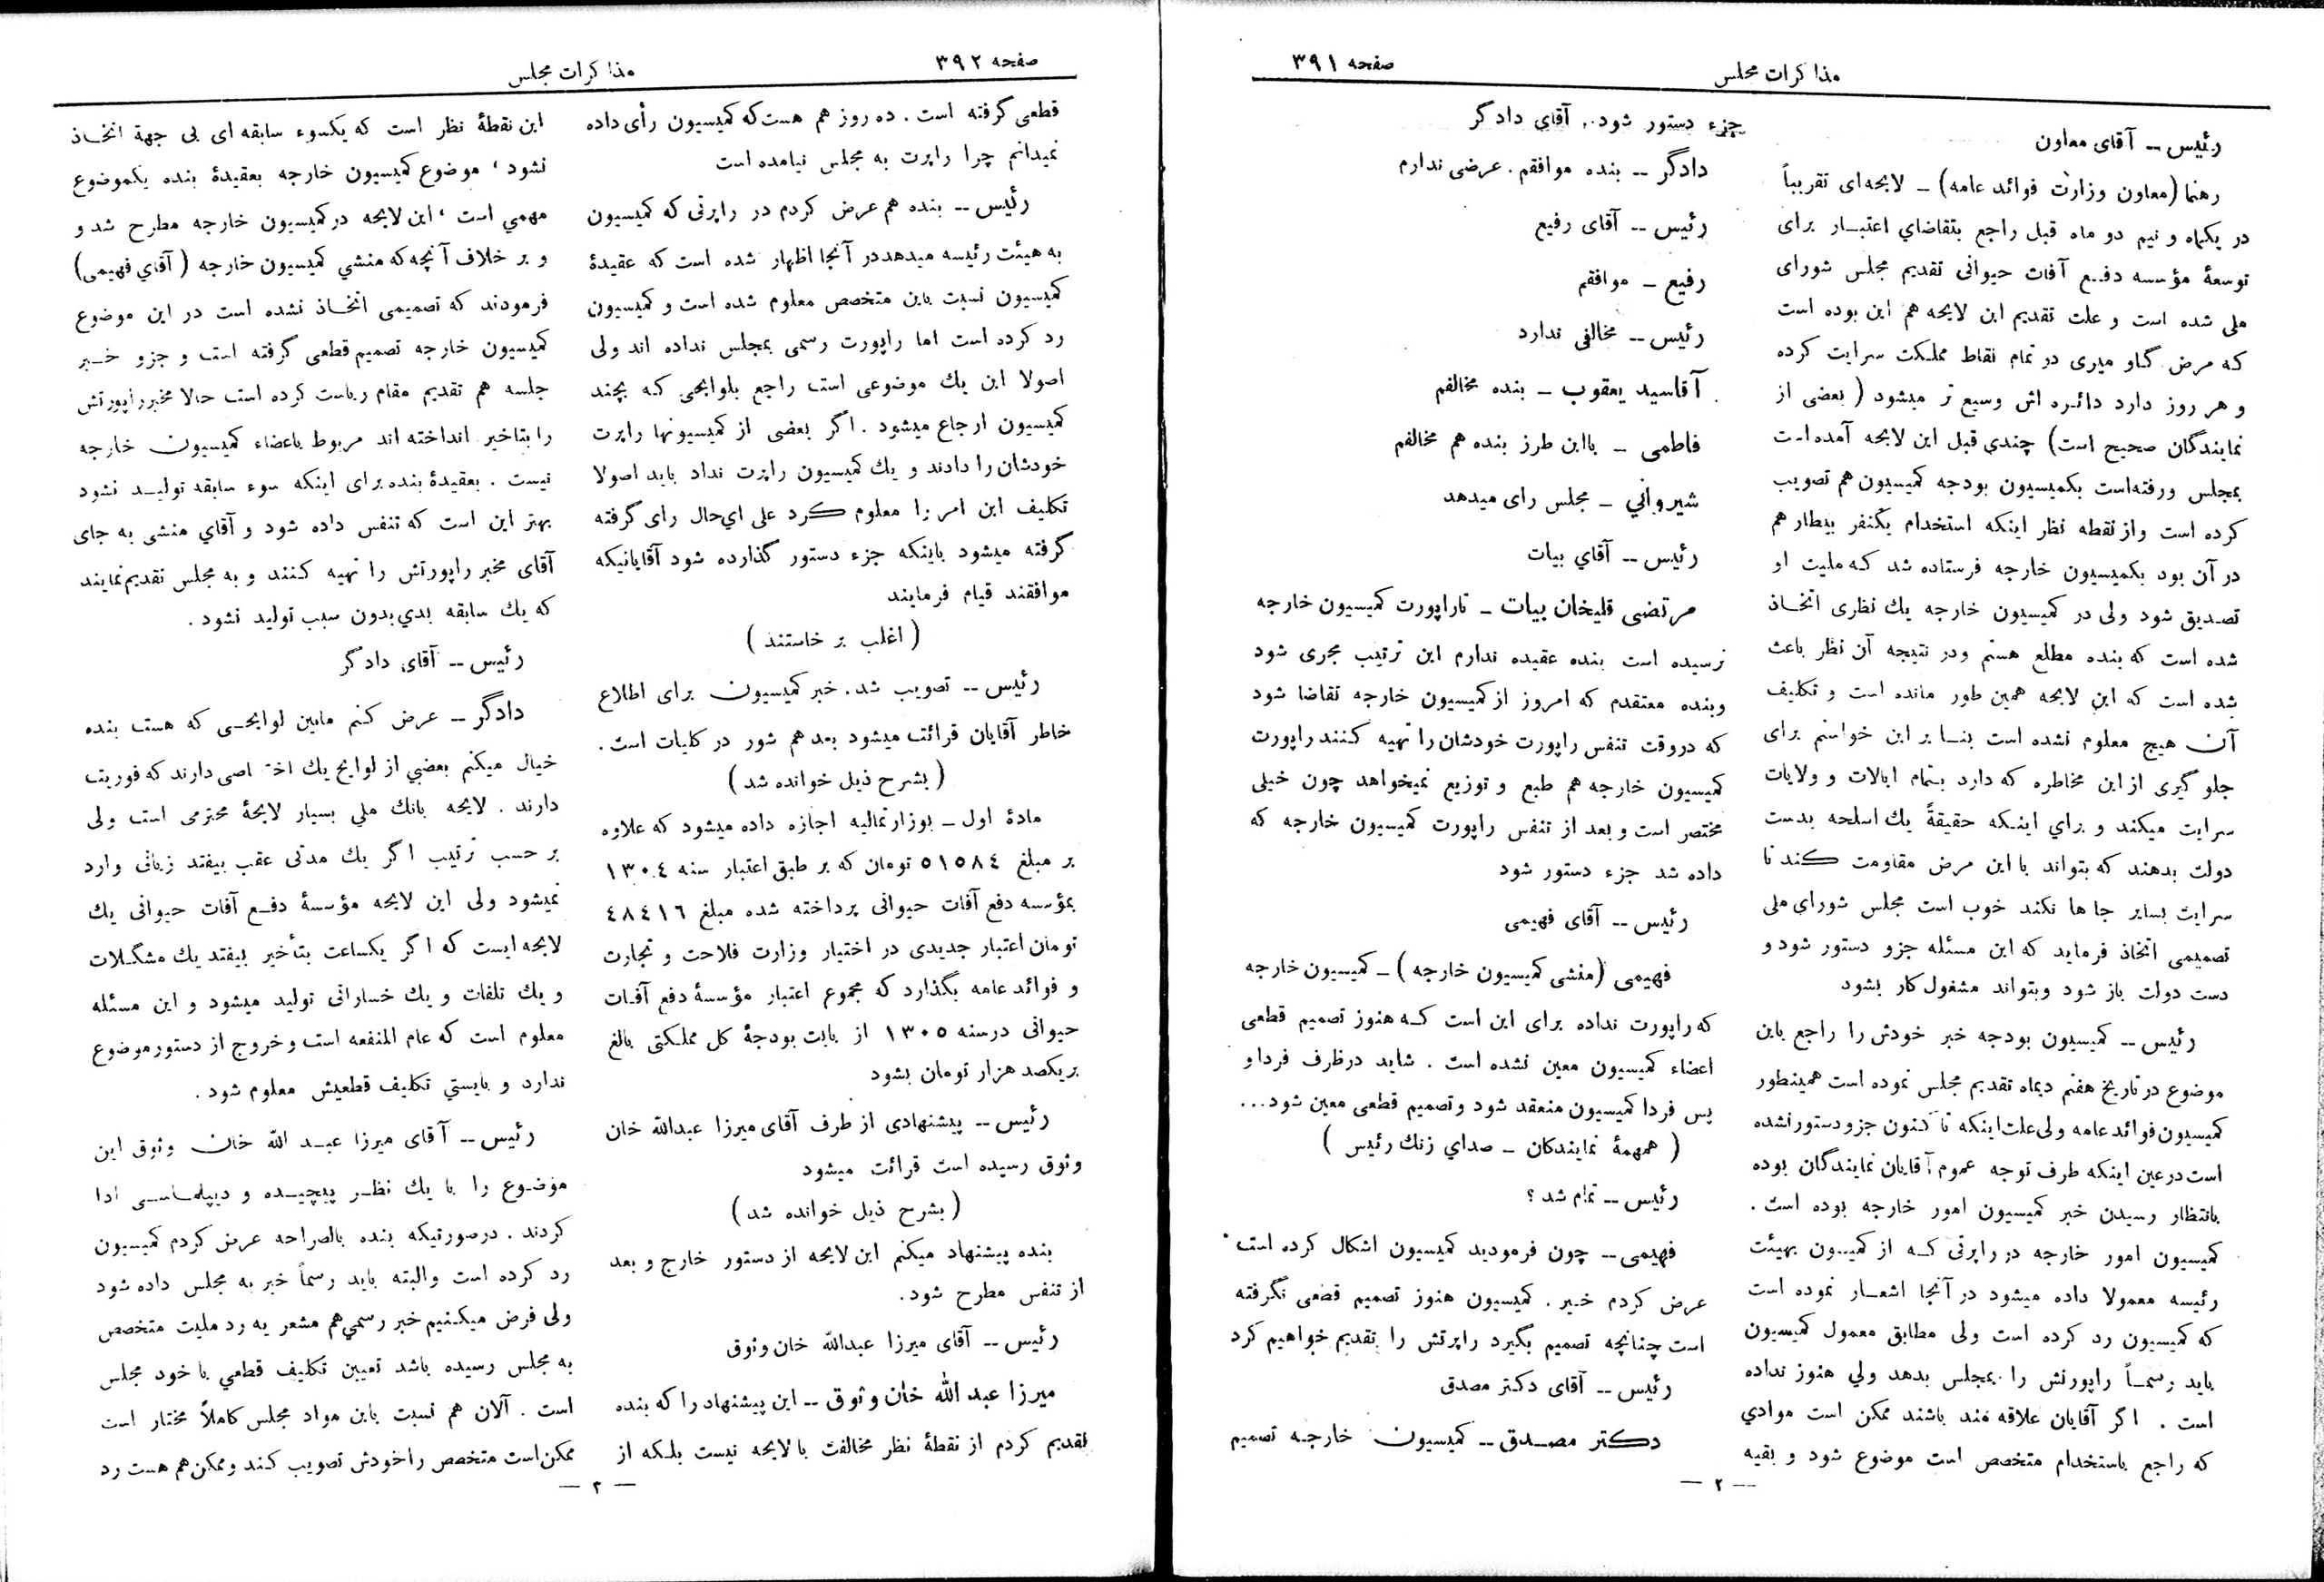 صفحه ۳۹۱
مذاکرات مجلس
رئیس -- آقای معاون
رهنما (معاون وزارت فوائد عامه) -- لایحه‌ای تقریباً
در یکماه و نیم دو ماه قبل راجع بتقاضاي اعتبار برای
توسعهٔ مؤسسه دفع آفات حیوانی تقدیم مجلس شورای
ملی شده است و علت تقدیم این لایحه هم این بوده است
که مرض گاو میری در تمام نقاط مملکت سرایت کرده
و هر روز دارد دائره اش وسیع تر میشود (بعضی از
نمایندگان صحیح است) چندي قبل این لایحه آمده است
بمجلس ورفته‌است بکمیسیون بودجه کمیسیون هم تصویب
کرده است واز نقطه نظر اینکه استخدام یکنفر بیطار هم
در آن بود بکمیسیون خارجه فرستاده شد که ملیت او
تصدیق شود ولی در کمیسیون خارجه یك نظری اتخاذ
شده است که بنده مطلع هستم ودر نتیجه آن نظر باعث
شده است که این لایحه همین طور مانده است و تکلیف
آن هیچ معلوم نشده است بنا بر این خواستم برای
جلو گیری از این مخاطره که دارد بتمام ایالات و ولایات
سرایت میکند و براي اینکه حقیقةً یك اسلحه بدست
دولت بدهند که بتواند با این مرض مقاومت کند تا
سرایت بسایر جا ها نکند خوب است مجلس شورای ملی
تصمیمی اتخاذ فرماید که این مسئله جزو دستور شود و
دست دولت باز شود وبتواند مشغول کار بشود
رئیس -- کمیسیون بودجه خبر خودش را راجع باین
موضوع در تاریخ هفتم دیماه تقدیم مجلس نموده است همینطور
کمیسیون فوائد عامه ولی علت اینکه تا کنون جزو دستور نشده
است در عین اینکه طرف توجه عموم آقایان نمایندگان بوده
بانتظار رسیدن خبر کمیسیون امور خارجه بوده است.
کمیسیون امور خارجه در راپرتی که از کمیسون بهیئت
رئیسه معمولا داده میشود در آنجا اشعار نموده است
که کمیسیون رد کرده است ولی مطابق معمول کمیسیون
باید رسماً راپورتش را بمجلس بدهد ولي هنوز نداده
است . اگر آقایان علاقه مند باشند ممکن است موادي
که راجع باستخدام متخصص است موضوع شود و بقیه
جزء دستور شود. آقای دادگر
دادگر -- بنده موافقم. عرضی ندارم
رئیس -- آقای رفیع
رفیع -- موافقم
رئیس -- مخالفی ندارد
آقاسید یعقوب -- بنده مخالفم
فاطمی -- بااین طرز بنده هم مخالفم
شیروانی -- مجلس رای میدهد
رئیس -- آقاي بیات
مرتضی قلیخان بیات -- تاراپورت کمیسیون خارجه
نرسیده است بنده عقیده ندارم این ترتیب مجری شود
وبنده معتقدم که امروز از کمیسیون خارجه تقاضا شود
که دروقت تنفس راپورت خودشان را تهیه کنند راپورت
کمیسیون خارجه هم طبع و توزیع نمیخواهد چون خیلی
مختصر است و بعد از تنفس راپورت کمیسیون خارجه که
داده شد جزء دستور شود
رئیس -- آقای فهیمی
فهیمی (منشی کمیسیون خارجه) -- کمیسیون خارجه
که راپورت نداده برای این است که هنوز تصمیم قطعی
اعضاء کمیسیون معین نشده است . شاید درظرف فردا و
پس فردا کمیسیون منعقد شود وتصمیم قطعی معین شود...
(همهمهٔ نمایندکان -- صدای زنك رئیس)
رئیس -- تمام شد ؟
فهیمی -- چون فرمودید کمیسیون اشکال کرده است
عرض کردم خیر . کمیسیون هنوز تصمیم قطعی نگرفته
است چنانچه تصمیم بگیرد راپرتش را تقدیم خواهیم کرد
رئیس -- آقای دکتر مصدق
دکتر مصدق -- کمیسیون خارجه تصمیم
— ۲ —
صفحه ۳۹۲
مذاکرات مجلس
قطعی گرفته است . ده روز هم هست که کمیسیون رأی داده
نمیدانم چرا راپرت به مجلس نیامده است
رئیس -- بنده هم عرض کردم در راپرتی که کمیسیون
به هیئت رئیسه میدهد در آنجا اظهار شده است که عقیدهٔ
کمیسیون نسبت باین متخصص معلوم شده است و کمیسیون
رد کرده است اما راپورت رسمی بمجلس نداده اند ولی
اصولا این یك موضوعی است راجع بلوایحی که بچند
کمیسیون ارجاع میشود . اگر بعضی از کمیسیونها راپرت
خودشان را دادند و یك کمیسیون راپرت نداد باید اصولا
تکلیف این امر را معلوم کرد علی اي‌حال رای گرفته
گرفته میشود باینکه جزء دستور گذارده شود آقایانیکه
موافقند قیام فرمایند
(اغلب بر خاستند)
رئیس -- تصویب شد. خبر کمیسیون برای اطلاع
خاطر آقایان قرائت میشود بعد هم شور در کلیات است.
(بشرح ذیل خوانده شد)
مادهٔ اول -- بوزارتمالیه اجازه داده میشود که علاوه
بر مبلغ ٥١٥٨٤ تومان که بر طبق اعتبار سنه ١٣٠٤
بمؤسسه دفع آفات حیوانی پرداخته شده مبلغ ٤٨٤١٦
تومان اعتبار جدیدی در اختیار وزارت فلاحت و تجارت
و فوائد عامه بگذارد که مجموع اعتبار مؤسسهٔ دفع آفات
حیوانی درسنه ١٣٠٥ از بابت بودجهٔ کل مملکتی بالغ
بریکصد هزار تومان بشود
رئیس -- پیشنهادی از طرف آقای میرزا عبدالله خان
وثوق رسیده است قرائت میشود
(بشرح ذیل خوانده شد)
بنده پیشنهاد میکنم این لایحه از دستور خارج و بعد
از تنفس مطرح شود.
رئیس -- آقای میرزا عبدالله خان وثوق
میرزا عبدالله خان وثوق -- این پیشنهاد را که بنده
تقدیم کردم از نقطهٔ نظر مخالفت با لایحه نیست بلکه از
این نقطهٔ نظر است که یکسوء سابقه ای بی جهة اتخاذ
نشود ، موضوع کمیسیون خارجه بعقیدهٔ بنده یکموضوع
مهمي است ، این لایحه در کمیسیون خارجه مطرح شد و
و بر خلاف آنچه که منشي کمیسیون خارجه (آقاي فهیمی)
فرمودند که تصمیمی اتخاذ نشده است در این موضوع
کمیسیون خارجه تصمیم قطعی گرفته است و جزو خبر
جلسه هم تقدیم مقام ریاست کرده است حالا مخبر راپورتش
را بتاخیر انداخته اند مربوط باعضاء کمیسیون خارجه
نیست . بعقیدهٔ بنده برای اینکه سوء سابقه تولید نشود
بهتر این است که تنفس داده شود و آقاي منشی به جای
آقای مخبر راپورتش را تهیه کنند و به مجلس تقدیم نمایند
که یك سابقه بدي بدون سبب تولید نشود .
رئیس -- آقای دادگر
دادگر -- عرض کنم مابین لوایحی که هست بنده
خیال میکنم بعضي از لوایح یك اختصاصی دارند که فوریت
دارند . لایحه بانك ملي بسیار لایحهٔ محترمی است ولی
بر حسب ترتیب اگر یك مدتی عقب بیفتد زیانی وارد
نمیشود ولی این لایحه مؤسسهٔ دفع آفات حیوانی یك
لایحه ایست که اگر یکساعت بتأخیر بیفتد یك مشگلات
و یك تلفات و یك خساراتی تولید میشود و این مسئله
معلوم است که عام المنفعه است وخروج از دستور موضوع
ندارد و بایستي تکلیف قطعیش معلوم شود .
رئیس -- آقای میرزا عبد الله خان وثوق این
موضوع را با یك نظر پیچیده و دیپلماسی ادا
کردند . درصورتیکه بنده بالصراحه عرض کردم کمیسیون
رد کرده است والبته باید رسماً خبر به مجلس داده شود
ولی فرض میکنیم خبر رسمي هم مشعر به رد ملیت متخصص
به مجلس رسیده باشد تعیین تکلیف قطعي با خود مجلس
است . آلان هم نسبت باین مواد مجلس کاملاً مختار است
ممکن است متخصص را خودش تصویب کند و ممکن هم هست رد
— ۳ —